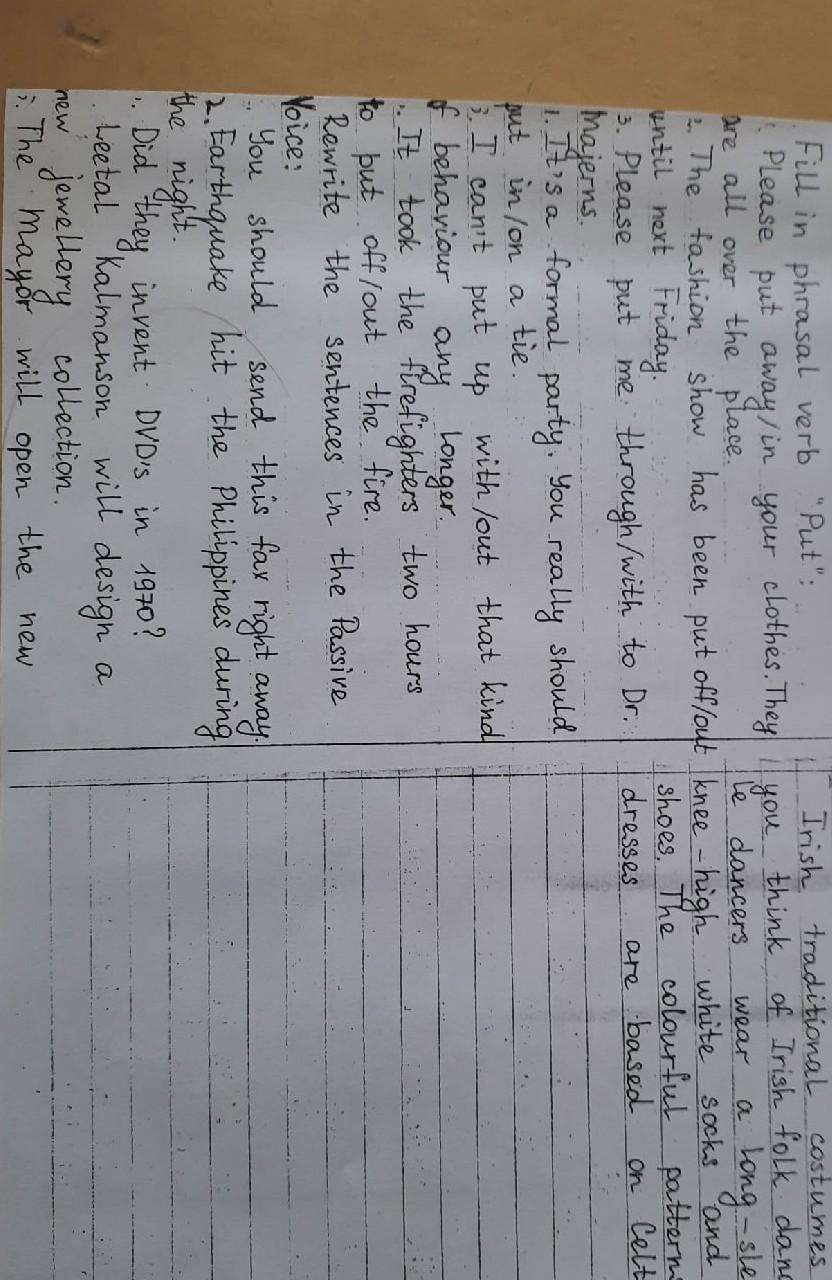 Fill in phrasal verb "Put":
1. Please put away/in your clothes. They
are all over the place.
2. The fashion show has been put off/out
until next Friday.
3. Please put me through/with to Dr.
Majerns.
1. It's a formal party. You really should
put in/on a tie.
I can't put up with/out that kind
of behaviour any longer.
It took the firefighters two hours
to put off/out the fire.
Rewrite the sentences in the Passive
Voice:
You should send this fax right away.
2. Earthquake hit the Philippines during
the night.
Did they invent DVD's in 1970?
Leetal Kalmanson will design a
new jewellery collection.
The Mayor will open the new
Irish traditional costumes
you think of Irish folk dan
le dancers wear a long-sle
knee-high white socks and
shoes. The colourful pattern
dresses are based on Celt